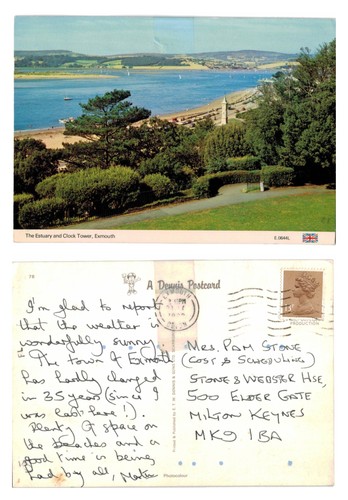 The Estuary and Clock Tower, Exmouth
A Dennis Postcard
I'm glad to report
that the weather is
wonderfully sunny.
The town of Exmouth
has hardly changed
in 35 years (since I
was last here!).
Plenty of space on
the beaches and a
good time is being
had by all,
MRS. PAM STONE
(COST & SCHEDULING)
STONE & WEBSTER HSE,
500 ELDER GATE
MILTON KEYNES
MK9 1BA
Photocolour